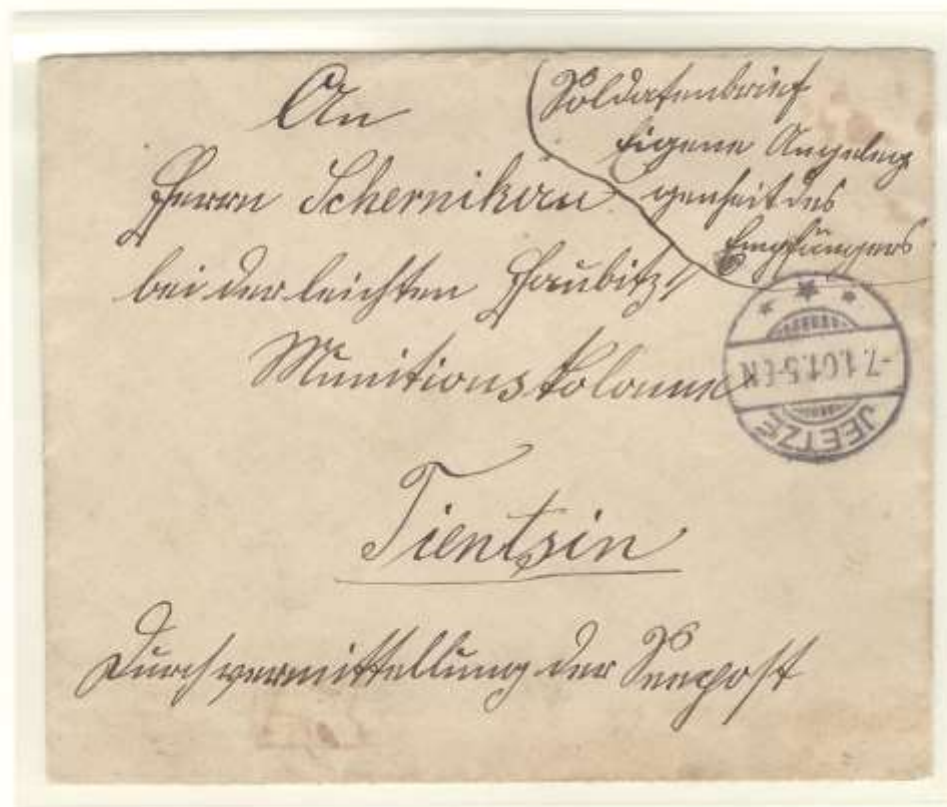 An
Herrn Schernikau
bei der leichten Haubitz/
Munitions Kolonne
Tientsin
Durchvermittellung der Seepost
Soldatenbrief
Eigene Angeleg
genheit des
Empfängers
JEETZE
-7.1.01.5-6N